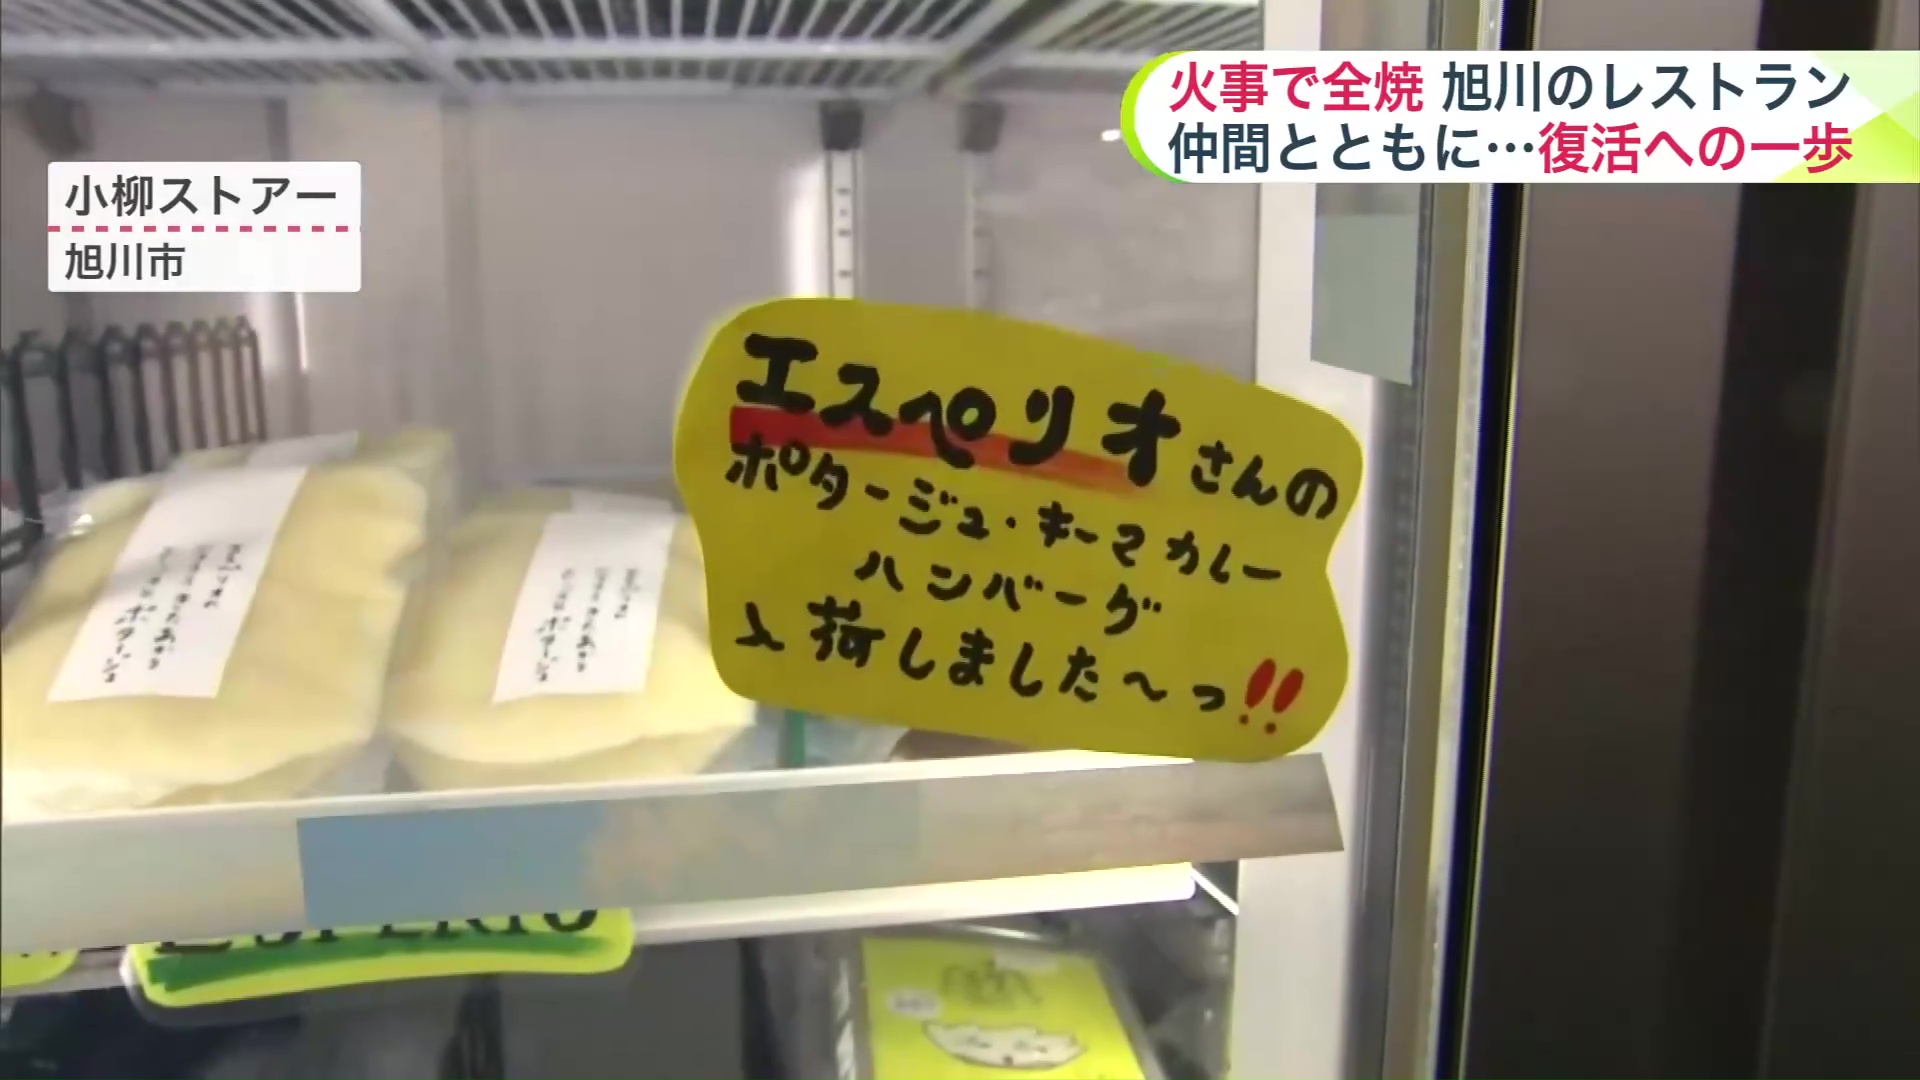 火事で全焼 旭川のレストラン
仲間とともに…復活への一歩
小柳ストアー
旭川市
エスペリオさんの
ポタージュ・キーマカレー
ハンバーグ
入荷しました〜っ!!
ポタージュ
ポタージュ
ESPERIO